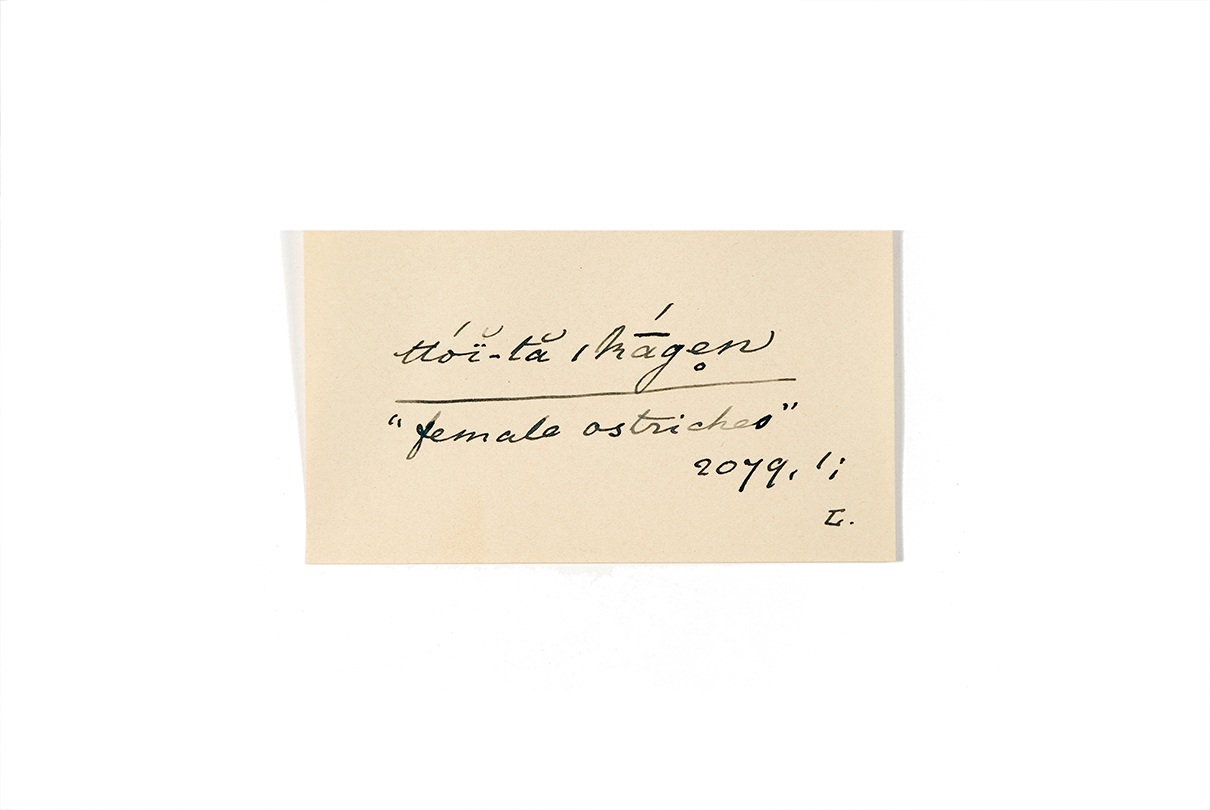 ttóï̆-tă ıkā́ge̥n
"female ostriches"
2079, ';
L.